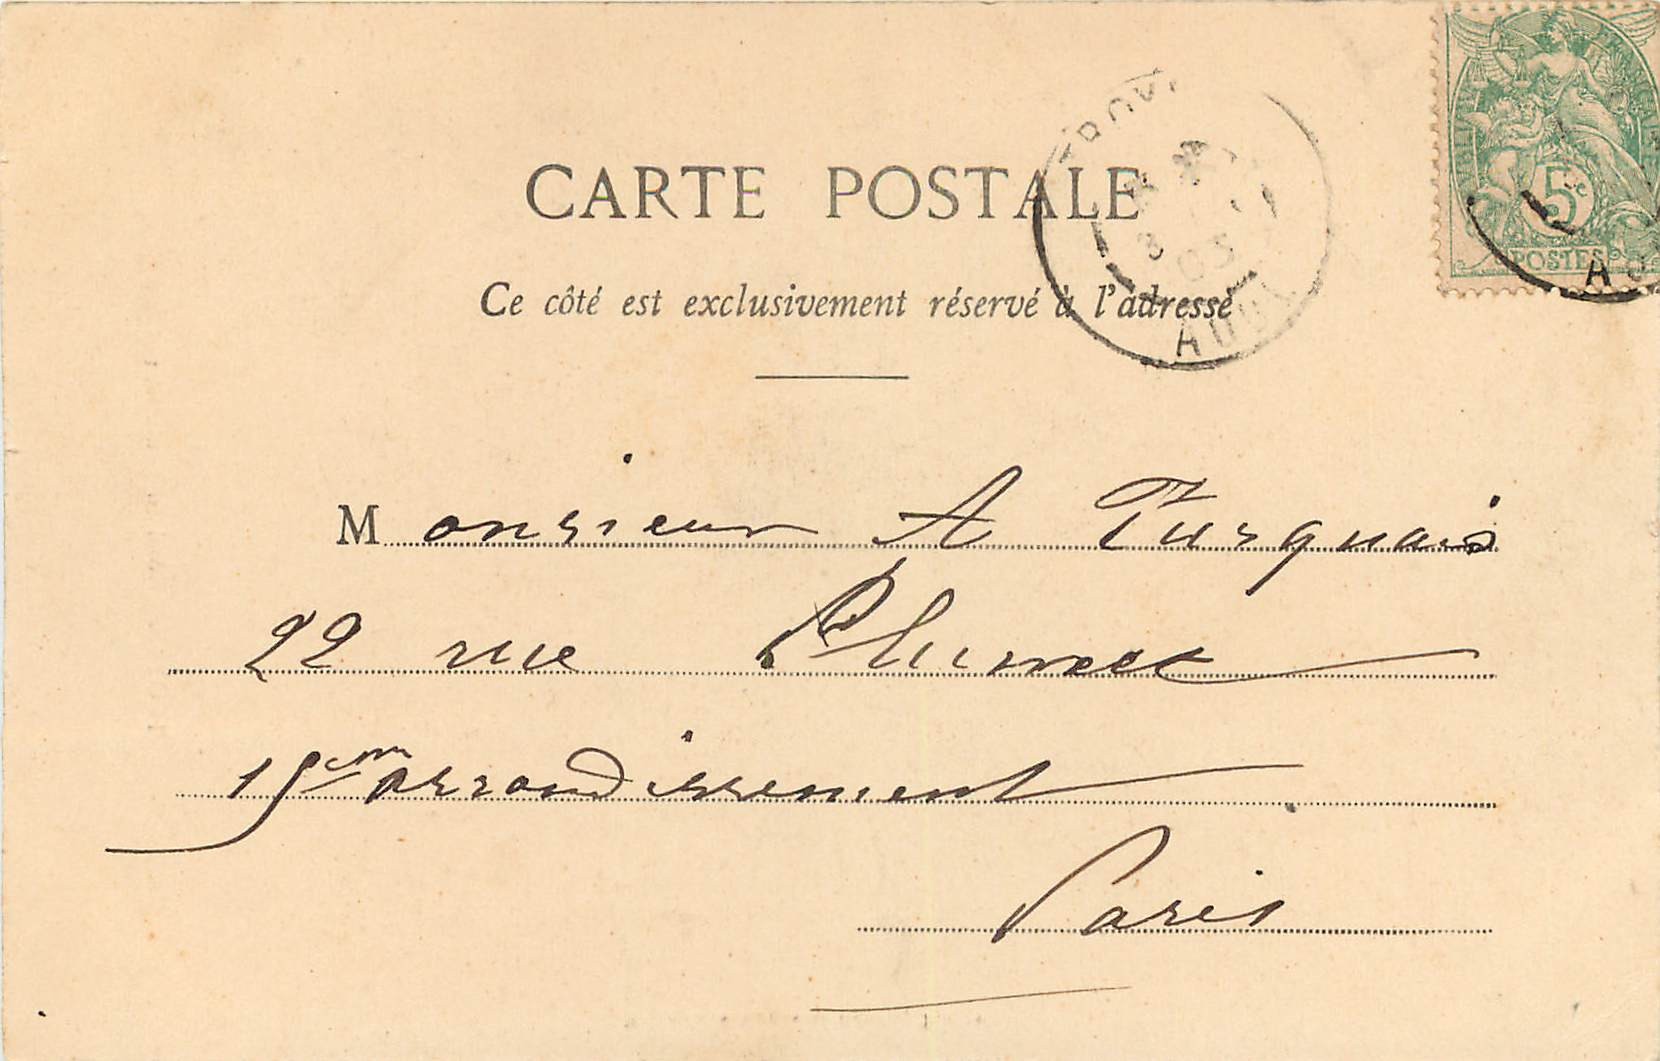 CARTE POSTALE
Ce côté est exclusivement réservé à l'adresse
5c
POSTES
03
AUBE
Monsieur A Turquais
22 rue Plumet
15em arrondissement
Paris